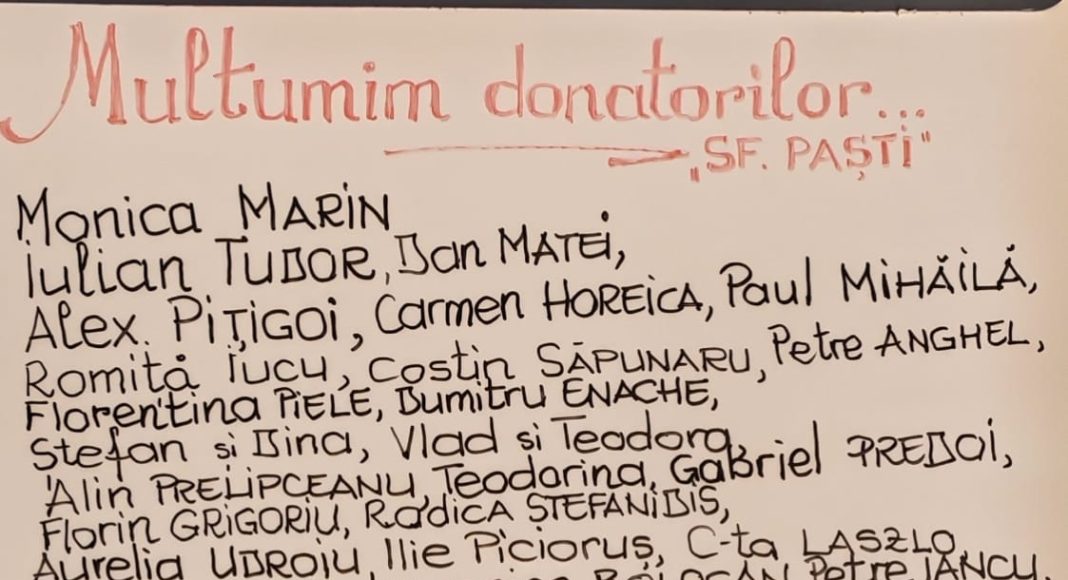 Multumim donatorilor...
„SF. PAȘTi"
Monica MARiN
Iulian TUDOR, Dan MATEi,
Alex. PiȚiGOi, Carmen HOREiCA, Paul MiHĂiLĂ,
Romită Iucu, Costin SĂPUNARU, Petre ANGHEL,
Florentina PiELE, Dumitru ENACHE,
Stefan și Dina, Vlad și Teodora,
Alin PRELiPCEANU, Teodorina, Gabriel PREDOi,
Florin GRiGORiU, Rodica STEFANiDIS,
Aurelia UDROiU, Ilie Piciorus, C-ta LASZLO,
Petre IANCU,